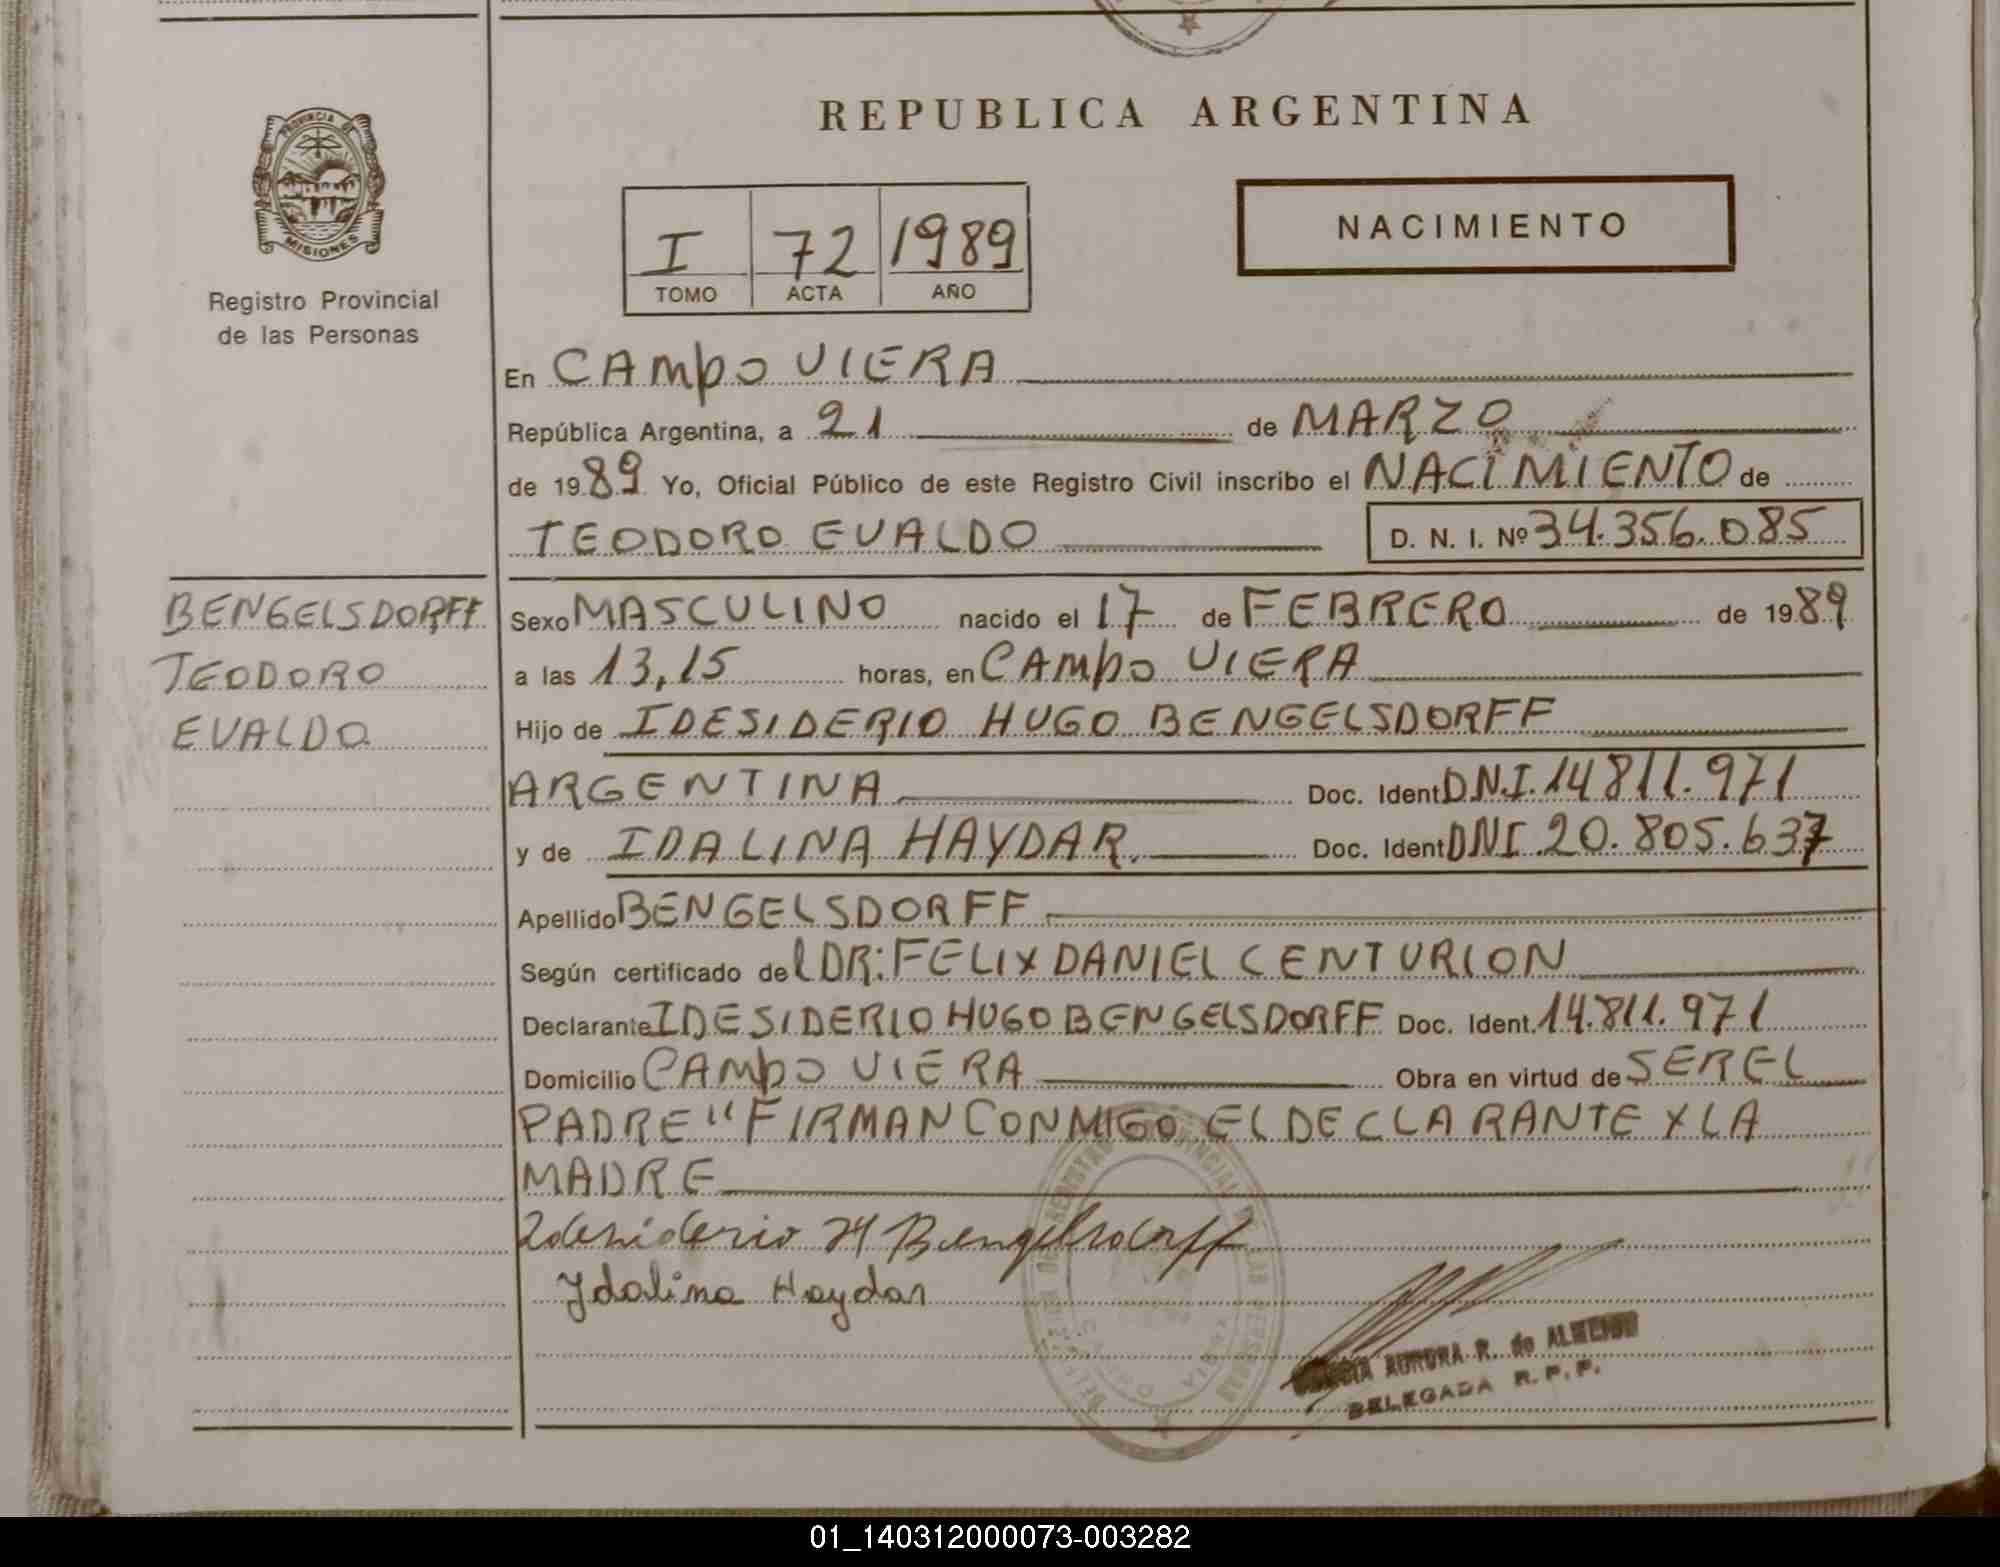 REPUBLICA ARGENTINA
PROVINCIA DE
MISIONES
Registro Provincial
de las Personas
I 72 1989
TOMO ACTA AÑO
NACIMIENTO
En CAMPO VIERA
República Argentina, a 21 de MARZO
de 1989 Yo, Oficial Público de este Registro Civil inscribo el NACIMIENTO de
TEODORO EVALDO D. N. I. Nº 34.356.085
BENGELSDORFF
TEODORO
EVALDO
Sexo MASCULINO nacido el 17 de FEBRERO de 1989
a las 13,15 horas, en CAMPO VIERA
Hijo de IDESIDERIO HUGO BENGELSDORFF
ARGENTINA Doc. Ident D.N.I. 14811.971
y de IDALINA HAYDAR. Doc. Ident DNI. 20.805.637
Apellido BENGELSDORFF
Según certificado del DR: FELIX DANIEL CENTURION
Declarante IDESIDERIO HUGO BENGELSDORFF Doc. Ident. 14.811.971
Domicilio CAMPO VIERA Obra en virtud de SER EL
PADRE "FIRMAN CONMIGO EL DECLARANTE Y LA
MADRE
Idesiderio H Bengelsdorff
Ydalina Haydar
AURORA R. de ALMEIDA
DELEGADA R. P. P.
01_140312000073-003282